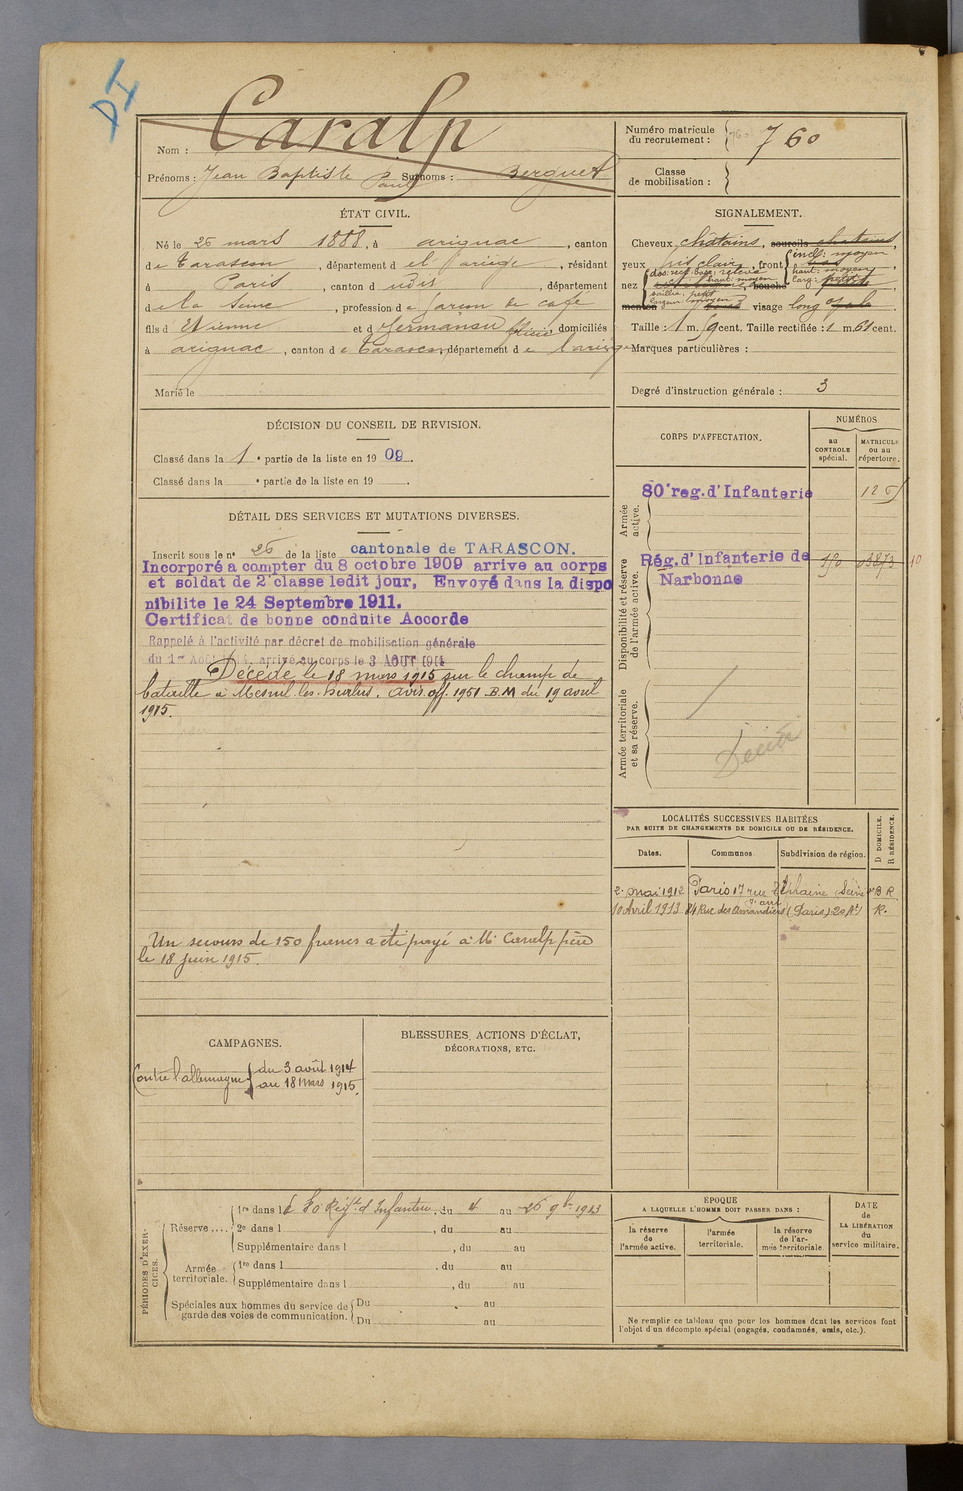 DI
Caralp
Nom :
Prénoms : Jean Baptiste Paul Surnoms : Berguet
Numéro matricule du recrutement : 760 760
Classe de mobilisation :
ÉTAT CIVIL.
Né le 26 mars 1888, à arignac, canton
de Tarascon, département d el l'ariège, résidant
à Paris, canton d udis, département
de la Seine, profession de garçon de café
fils d' Etienne et d Germaine, domiciliés
à arignac, canton d e Tarascon, département d e l'ariège
Marié le
SIGNALEMENT.
Cheveux châtains, sourcils chatains,
yeux gris clair, front incl: moyen
haut: moyen
larg: petite
nez dos: rect. base: relevé
haut: moyen bouche
saillie: petit
largeur: moyen
menton visage long
Taille : 1 m. cent. Taille rectifiée : 1 m. 61 cent.
Marques particulières :
Degré d'instruction générale : 3
DÉCISION DU CONSEIL DE REVISION.
Classé dans la 1 e partie de la liste en 19 09.
Classé dans la e partie de la liste en 19 .
CORPS D'AFFECTATION.
NUMÉROS
au CONTROLE spécial.
MATRICULE ou au répertoire.
Armée active.
80e reg. d'Infanterie
Disponibilité et réserve de l'armée active.
Rég. d'Infanterie de
Narbonne
Armée territoriale et sa réserve.
Décédé
DÉTAIL DES SERVICES ET MUTATIONS DIVERSES.
Inscrit sous le n° 26 de la liste cantonale de TARASCON.
Incorporé a compter du 8 octobre 1909 arrive au corps
et soldat de 2e classe ledit jour, Envoyé dans la dispo
nibilite le 24 Septembre 1911.
Certificat de bonne conduite Accorde
Rappelé à l'activité par décret de mobilisation générale
du 1er Août 1914, arrivé au corps le 3 AOUT 1914
Décédé le 18 mars 1915 sur le champ de
bataille à Mesnil-les-Hurlus. avis off. 1951 B.M du 19 avril
1915.
Un secours de 150 francs a été payé à Mr Caralp père
le 18 juin 1915.
LOCALITÉS SUCCESSIVES HABITÉES
PAR SUITE DE CHANGEMENTS DE DOMICILE OU DE RÉSIDENCE.
Dates.
Communes
Subdivision de région.
D DOMICILE.
R RÉSIDENCE.
2 mai 1912 Paris 17 rue Seine B R
10 Avril 1913 84 Rue des Amandiers (Paris) 20 At R.
CAMPAGNES.
Contre l'allemagne du 3 août 1914
au 18 mars 1915.
BLESSURES, ACTIONS D'ÉCLAT,
DÉCORATIONS, ETC.
PÉRIODES D'EXERCICES.
Réserve .... 1re dans l e 80 Régt d'Infanterie, du 4 au 26 9bre 1913
2e dans l , du au
Supplémentaire dans l , du au
Armée territoriale. 1re dans l , du au
Supplémentaire dans l , du au
Spéciales aux hommes du service de garde des voies de communication. Du au
Du au
ÉPOQUE
A LAQUELLE L'HOMME DOIT PASSER DANS :
la réserve de l'armée active.
l'armée territoriale.
la réserve de l'armée territoriale.
DATE de LA LIBÉRATION du service militaire.
Ne remplir ce tableau que pour les hommes dont les services font
l'objet d'un décompte spécial (engagés, condamnés, omis, etc.).